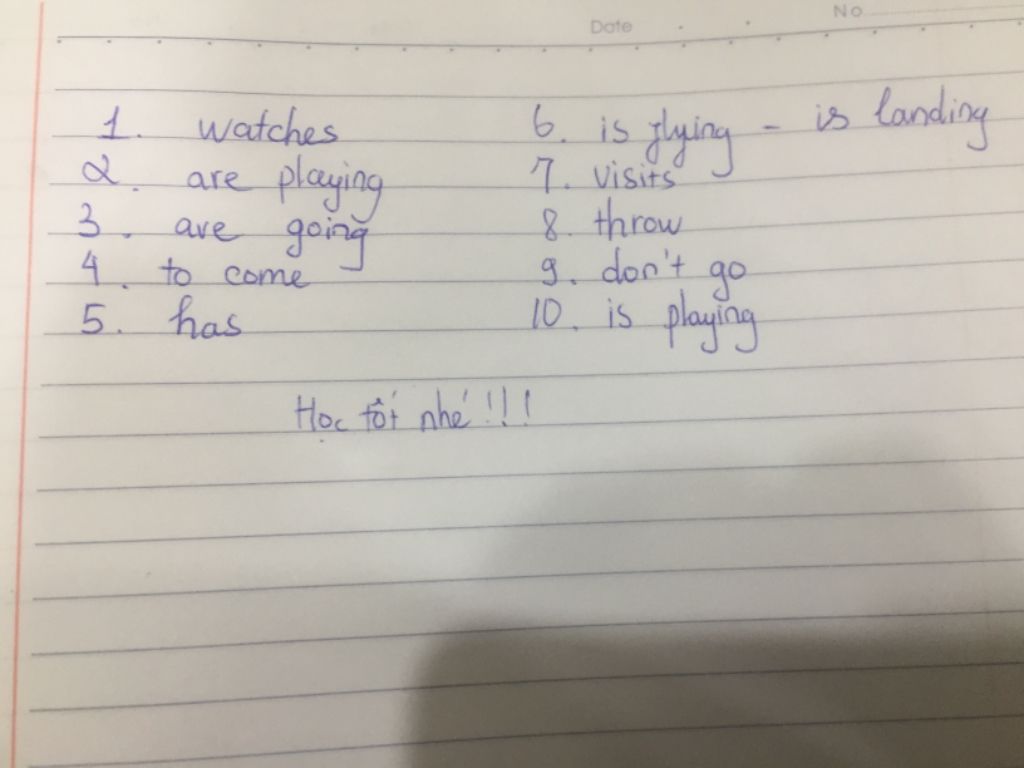 Date No
1. watches
2. are playing
3. are going
4. to come
5. has
6. is flying - is landing
7. visits
8. throw
9. don't go
10. is playing
Học tốt nhé!!!